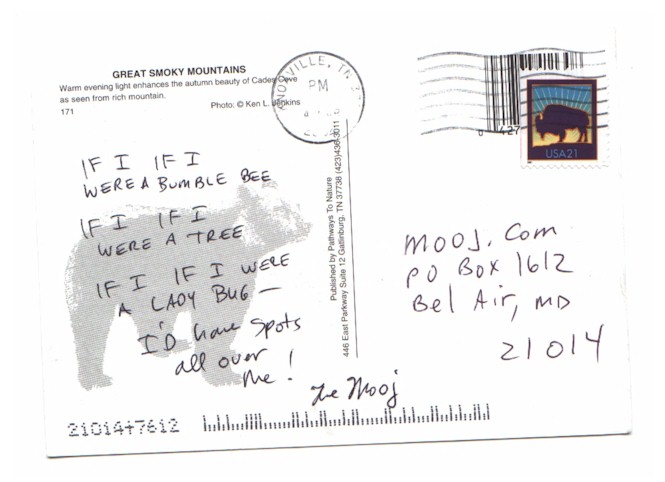 GREAT SMOKY MOUNTAINS
Warm evening light enhances the autumn beauty of Cades Cove
as seen from rich mountain.
171
Photo: © Ken L. Jenkins
KNOXVILLE, TN
PM
0 427
USA21
IF I IF I
WERE A BUMBLE BEE
IF I IF I
WERE A TREE
IF I IF I WERE
A LADY BUG —
I'D have spots
all over
me!
The Mooj
Published by Pathways To Nature
446 East Parkway Suite 12 Gatlinburg, TN 37738 (423)436-3011
MOOJ. Com
PO BOX 1612
Bel Air, MD
21014
21014+7612